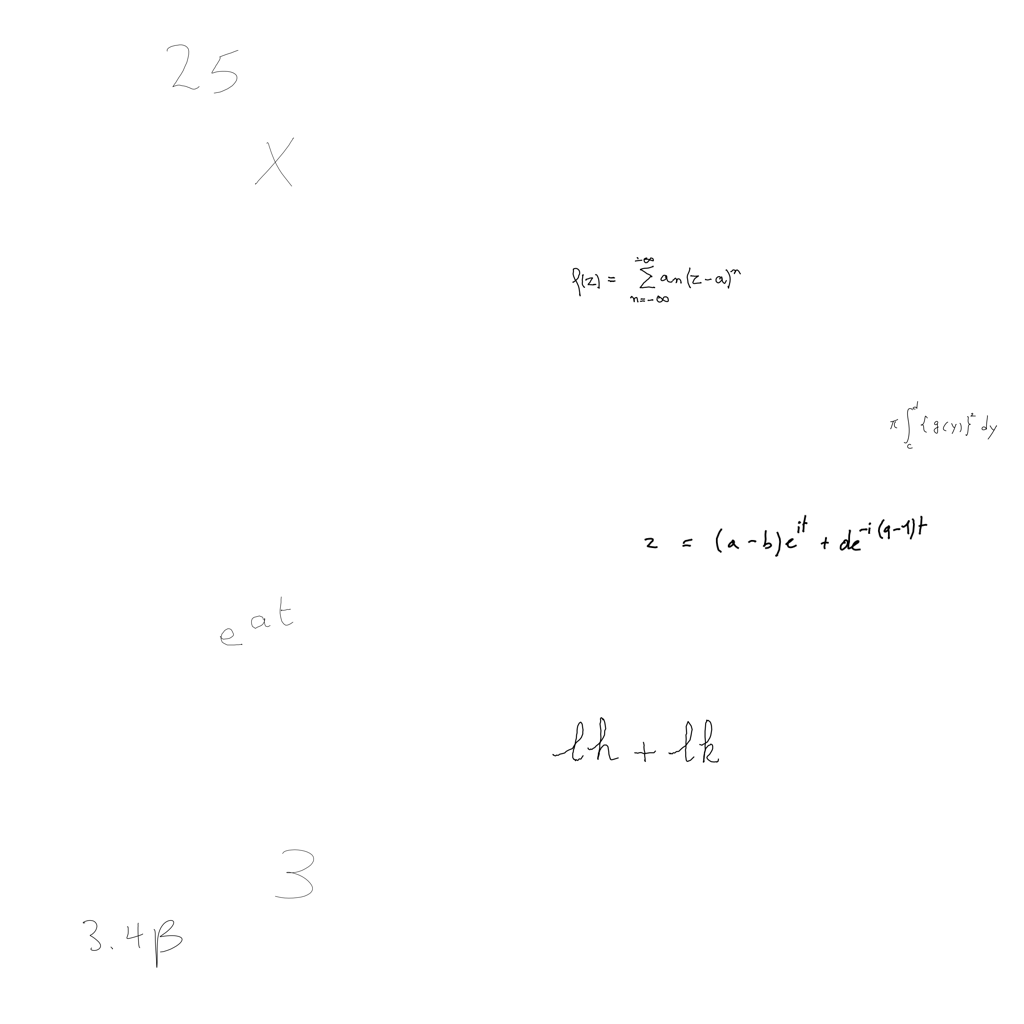 25
X
f(z) = \sum_{n=-\infty}^{+\infty} a_n (z-a)^n
\pi \int_c^d \{g(y)\}^2 dy
z = (a-b)e^{it} + de^{-i(q-1)t}
e^{at}
lh + lk
3
3.4β